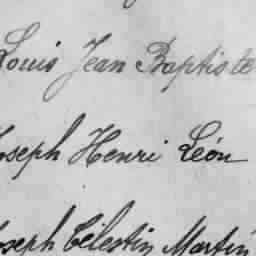 Louis Jean Baptiste
Joseph Henri Léon
Joseph Célestin Martin